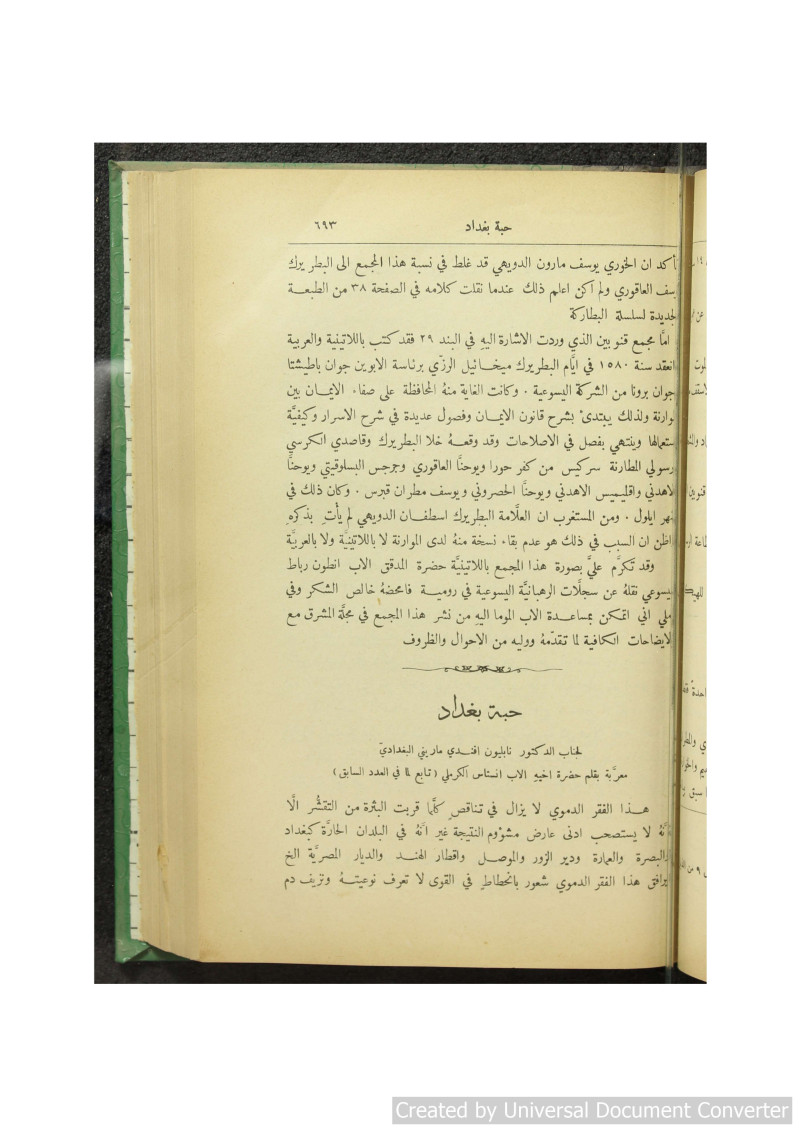 حبة بغداد ٦٩٣
تأكد ان الخوري يوسف مارون الدويهي قد غلط في نسبة هذا المجمع الى البطريرك
يوسف العاقوري ولم اكن اعلم ذلك عندما نقلت كلامه في الصفحة ٣٨ من الطبعــة
الجديدة لسلسلة البطاركة
امَّا مجمع قنوبين الذي وردت الاشارة اليهِ في البند ٢٩ فقد كتب باللاتينية والعربية
انعقد سنة ١٥٨٠ في ايَّام البطريرك ميخــائيل الرزّي برئاسة الابوين جوان باطيشتا
وجوان برونا من الشركة اليسوعية . وكانت الغاية منهُ المحافظة على صفاء الايمــان بين
الموارنة ولذلك يبتدئ بشرح قانون الايمــان وفصول عديدة في شرح الاسرار وكيفيَّة
استعمالها وينتهي بفصل في الاصلاحات وقد وقعــهُ خلا البطريرك وقاصدي الكرسي
الرسولي المطارنة سركيس من كفر حورا ويوحنَّا العاقوري وجرجس البسلوقيتي ويوحنَّا
الاهدني واقليميس الاهدني ويوحنَّا الحصروني ويوسف مطران قبرس . وكان ذلك في
شهر ايلول . ومن المستغرب ان العلَّامة البطريرك اسطفــان الدويهي لم يأتِ بذكرهِ
واظن ان السبب في ذلك هو عدم بقاء نسخة منهُ لدى الموارنة لا باللاتينيَّة ولا بالعربيَّة
وقد تكرَّم عليَّ بصورة هذا المجمع باللاتينيَّة حضرة المدقق الاب انطون رباط
اليسوعي نقلهُ عن سجلَّات الرهبانيَّة اليسوعية في روميــة فامحضهُ خالص الشكر وفي
املي اني اتمكن بمساعــدة الاب الموما اليهِ من نشر هذا المجمع في مجلَّة المشرق مع
الايضاحات الكافية لما تقدَّمهُ ووليه من الاحوال والظروف
حبة بغداد
لجناب الدكتور نابليون افنــدي ماريني البغداديّ
معرَّبة بقلم حضرة اخيهِ الاب انستاس الكرملي (تابع لما في العدد السابق)
هــذا الفقر الدموي لا يزال في تناقصٍ كلَّما قربت البثرة من التقشُّر الَّا
انَّهُ لا يستصحب ادنى عارض مشؤوم النتيجة غير انَّهُ في البلدان الحارَّة كبغداد
والبصرة والعمارة ودير الزور والموصــل واقطار الهنــد والديار المصريَّة الخ
يرافق هذا الفقر الدموي شعور بانحطاطٍ في القوى لا تعرف نوعيتــهُ ونزيف دم
Created by Universal Document Converter